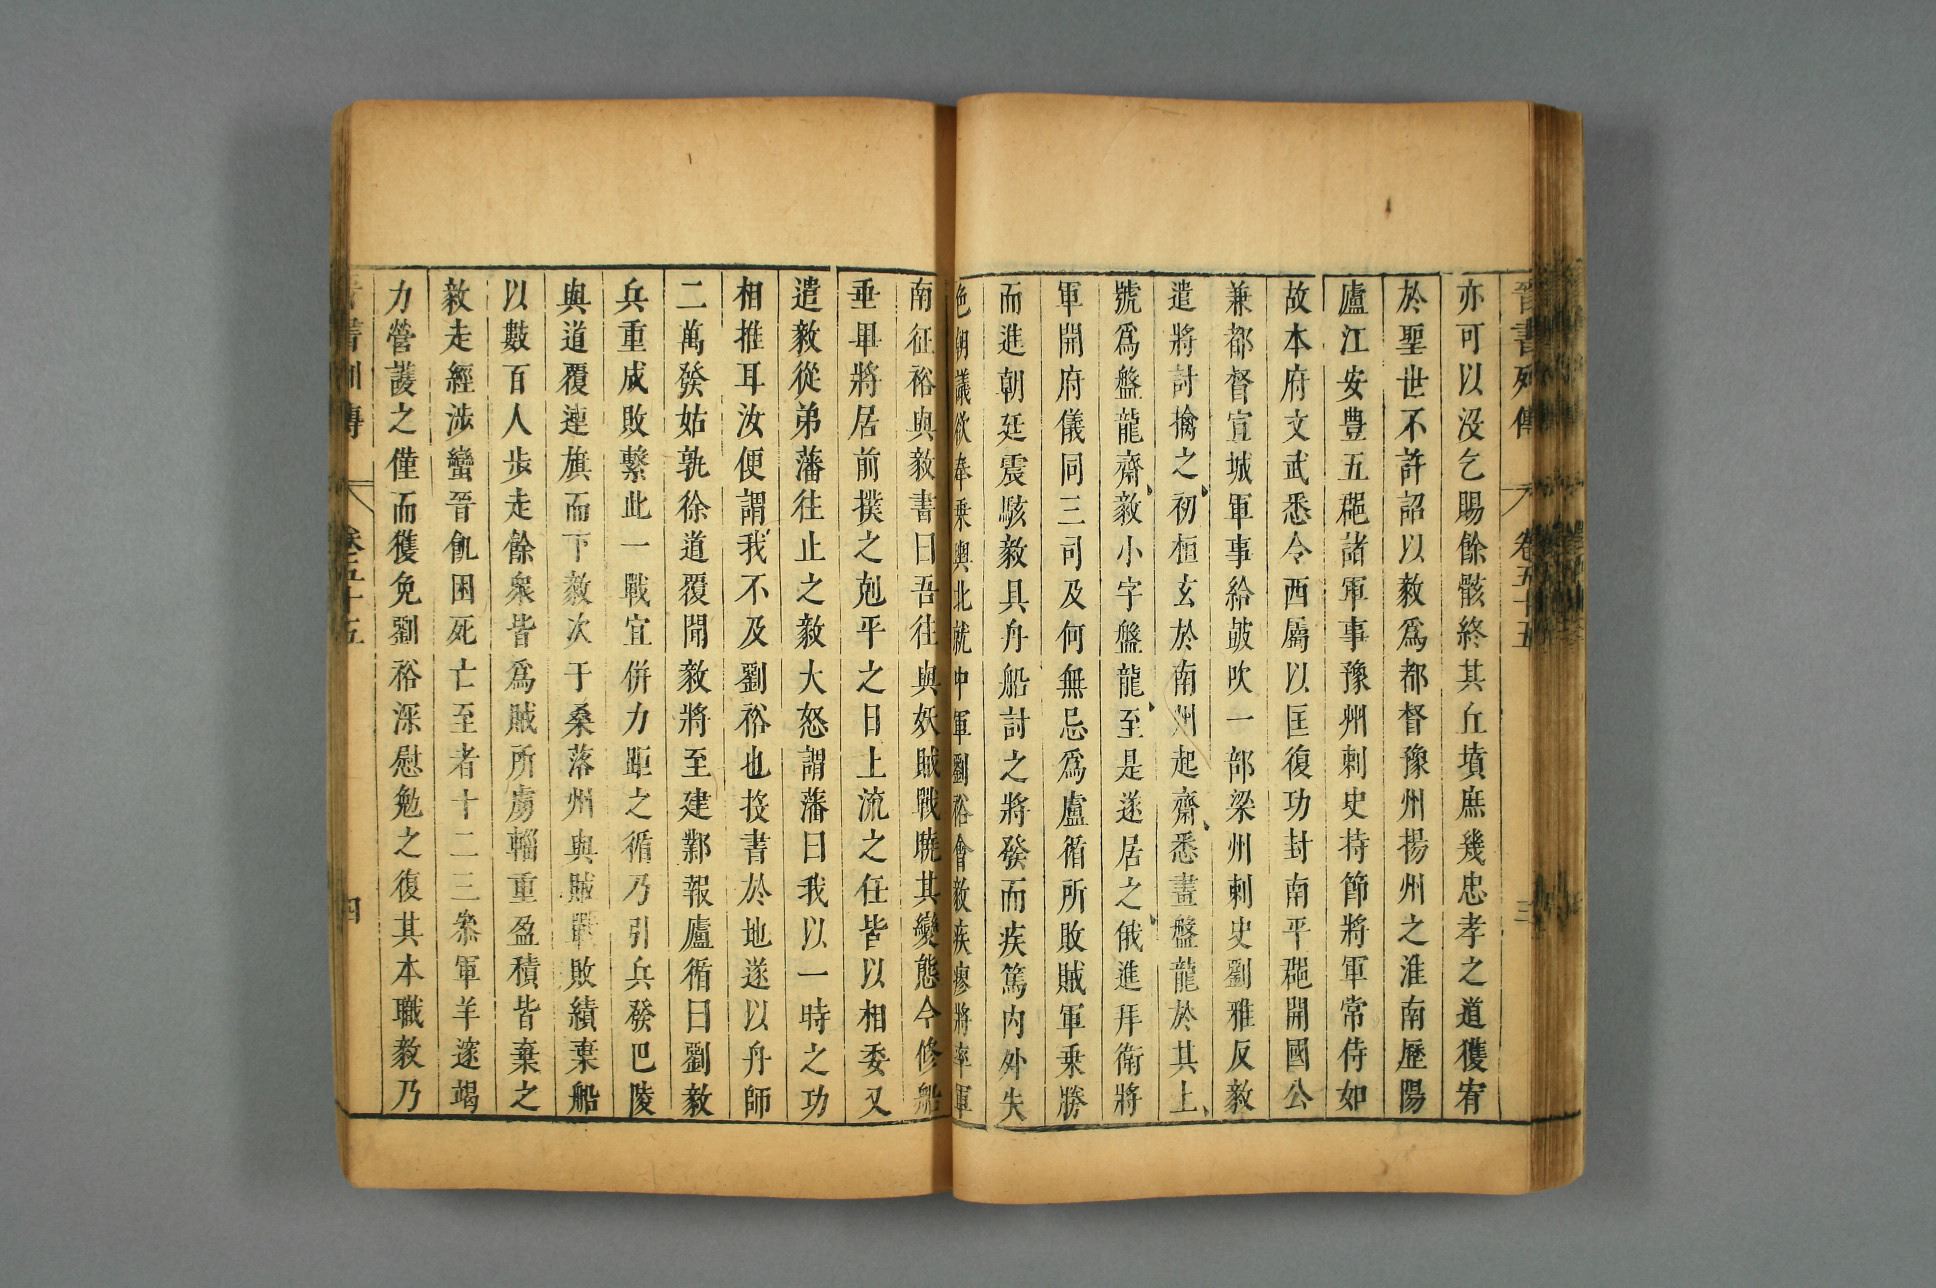 晉書列傳 卷五十五 三
亦可以沒乞賜餘骸終其丘墳庶幾忠孝之道獲宥
於聖世不許詔以毅爲都督豫州揚州之淮南歷陽
廬江安豊五郡諸軍事豫州刺史持節將軍常侍如
故本府文武悉令西屬以匡復功封南平郡開國公
兼都督宣城軍事給鼓吹一部梁州刺史劉雅反毅
遣將討擒之初桓玄於南州起齋悉畫盤龍於其上
號爲盤龍齋毅小字盤龍至是遂居之俄進拜衛將
軍開府儀同三司及何無忌爲盧循所敗賊軍乗勝
而進朝廷震駭毅具舟船討之將發而疾篤内外失
色朝議欲奉乗輿北就中軍劉裕會毅疾瘳將率軍
南征裕與毅書曰吾往與妖賊戰曉其變態今修船
垂畢將居前撲之剋平之日上流之任皆以相委又
遣毅從弟藩往止之毅大怒謂藩曰我以一時之功
相推耳汝便謂我不及劉裕也投書於地遂以舟師
二萬發姑孰徐道覆聞毅將至建鄴報盧循曰劉毅
兵重成敗繫此一戰宜併力距之循乃引兵發巴陵
與道覆連旗而下毅次于桑落州與賊戰敗績棄船
以數百人步走餘衆皆爲賊所虜輜重盈積皆棄之
毅走經涉蠻晉飢困死亡至者十二三叅軍羊邃竭
力營護之僅而獲免劉裕深慰勉之復其本職毅乃
晉書列傳 卷五十五 四